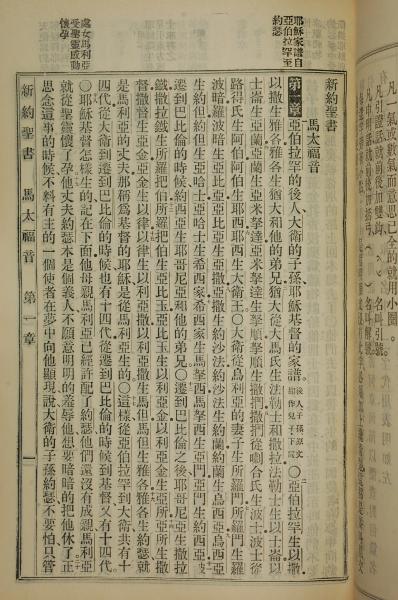 氣或數氣而意思已全的就用小圈。
耶穌家譜自
亞伯拉罕至
約瑟
處女馬利亞
受聖靈感動
懷孕
新約聖書
馬太福音
第一章 亞伯拉罕的後人大衛的子孫耶穌基督的家譜。後人子孫原文都作兒子下同○亞伯拉罕生以撒
以撒生雅各雅各生猶大和他的弟兄猶大從大馬氏生法勒士和撒拉法勒士生以士崙以
士崙生亞蘭亞蘭生亞米拏達亞米拏達生拏順拏順生撒們撒們從喇合氏生波士波士從
路得氏生阿伯阿伯生耶西耶西生大衛王○大衛從烏利亞的妻子生所羅門所羅門生羅
波暗羅波暗生亞比亞亞比亞生亞撒亞撒生約沙法約沙法生約蘭約蘭生烏西亞烏西亞
生約但約但生亞哈士亞哈士生希西家希西家生馬拏西馬拏西生亞們亞們生約西亞
遷到巴比倫的時候約西亞生耶哥尼亞和他的弟兄○遷到巴比倫之後耶哥尼亞生撒拉
鐵撒拉鐵生所羅把伯所羅把伯生亞比玉亞比玉生以利亞金以利亞金生亞所亞所生撒
督撒督生亞金亞金生以律以律生以利亞撒以利亞撒生馬但馬但生雅各雅各生約瑟就
是馬利亞的丈夫那稱爲基督的耶穌是從馬利亞生的○這樣從亞伯拉罕到大衛共有十
四代從大衛到遷到巴比倫的時候也有十四代從遷到巴比倫的時候到基督又有十四代
○耶穌基督怎樣生的記在下面他母親馬利亞已經許配了約瑟他們還沒有成親馬利亞
就從聖靈懷了孕他丈夫約瑟本是個義人不願意明明的羞辱他想要暗暗的把他休了正
思念這事的時候不料有主的一個使者在夢中向他顯現說大衛的子孫約瑟不要怕只管
新約聖書 馬太福音 第一章 一